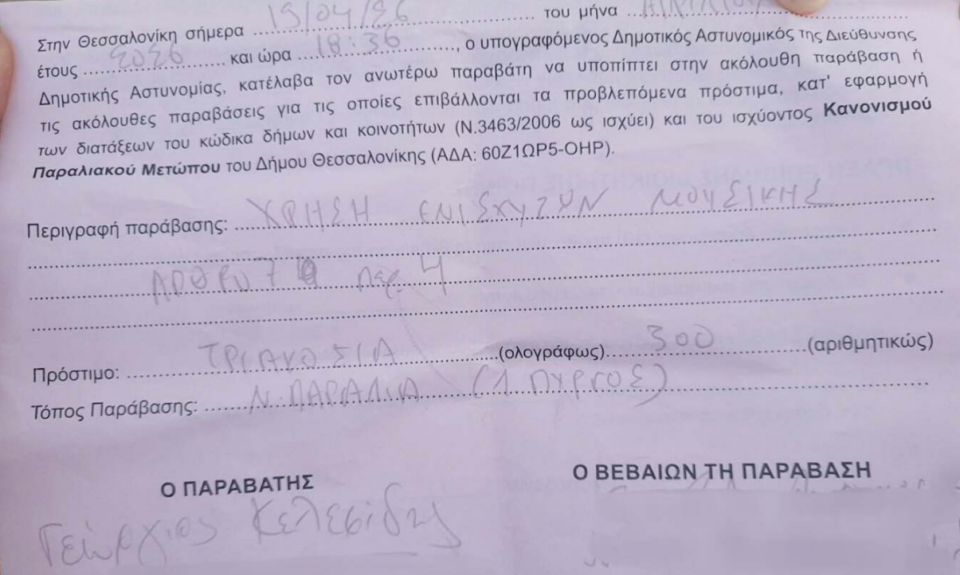 Στην Θεσσαλονίκη σήμερα 15/04/26 του μήνα ΑΠΡΙΛΙΟΥ
έτους 2026 και ώρα 18:36, ο υπογραφόμενος Δημοτικός Αστυνομικός της Διεύθυνσης
Δημοτικής Αστυνομίας, κατέλαβα τον ανωτέρω παραβάτη να υποπίπτει στην ακόλουθη παράβαση ή
τις ακόλουθες παραβάσεις για τις οποίες επιβάλλονται τα προβλεπόμενα πρόστιμα, κατ' εφαρμογή
των διατάξεων του κώδικα δήμων και κοινοτήτων (Ν.3463/2006 ως ισχύει) και του ισχύοντος Κανονισμού
Παραλιακού Μετώπου του Δήμου Θεσσαλονίκης (ΑΔΑ: 60Ζ1ΩΡ5-ΟΗΡ).
Περιγραφή παράβασης: ΧΡΗΣΗ ΕΝΙΣΧΥΤΩΝ ΜΟΥΣΙΚΗΣ
ΑΡΘΡΟ 7 παρ. 4
Πρόστιμο: ΤΡΙΑΚΟΣΙΑ (ολογράφως) 300 (αριθμητικώς)
Τόπος Παράβασης: Ν. ΠΑΡΑΛΙΑ (Λ. ΠΥΡΓΟΣ)
Ο ΠΑΡΑΒΑΤΗΣ Ο ΒΕΒΑΙΩΝ ΤΗ ΠΑΡΑΒΑΣΗ
Γεώργιος Κελεσίδης